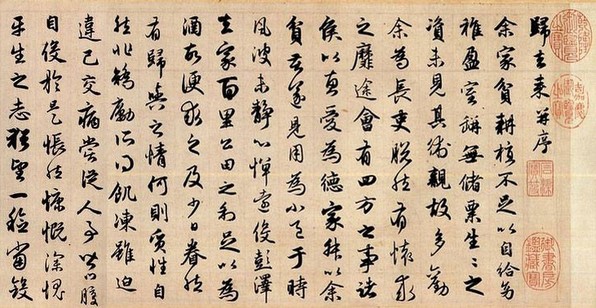 歸去来并序
余家貧耕植不足以自給幼
稚盈室缾無儲粟生生之
資未見其術親故多勸
余為長吏脫然有懷求
之靡途會有四方之事諸
侯以惠愛為德家叔以余
貧苦遂見用為小邑于時
風波未静心憚遠役彭澤
去家百里公田之利足以為
酒故便求之及少日眷然
有歸與之情何則質性自
然非矯勵所得飢凍雖迫
違己交病嘗從人事皆口腹
自役於是悵然慷慨深愧
平生之志猶望一稔當斂
御書房鑑藏寶